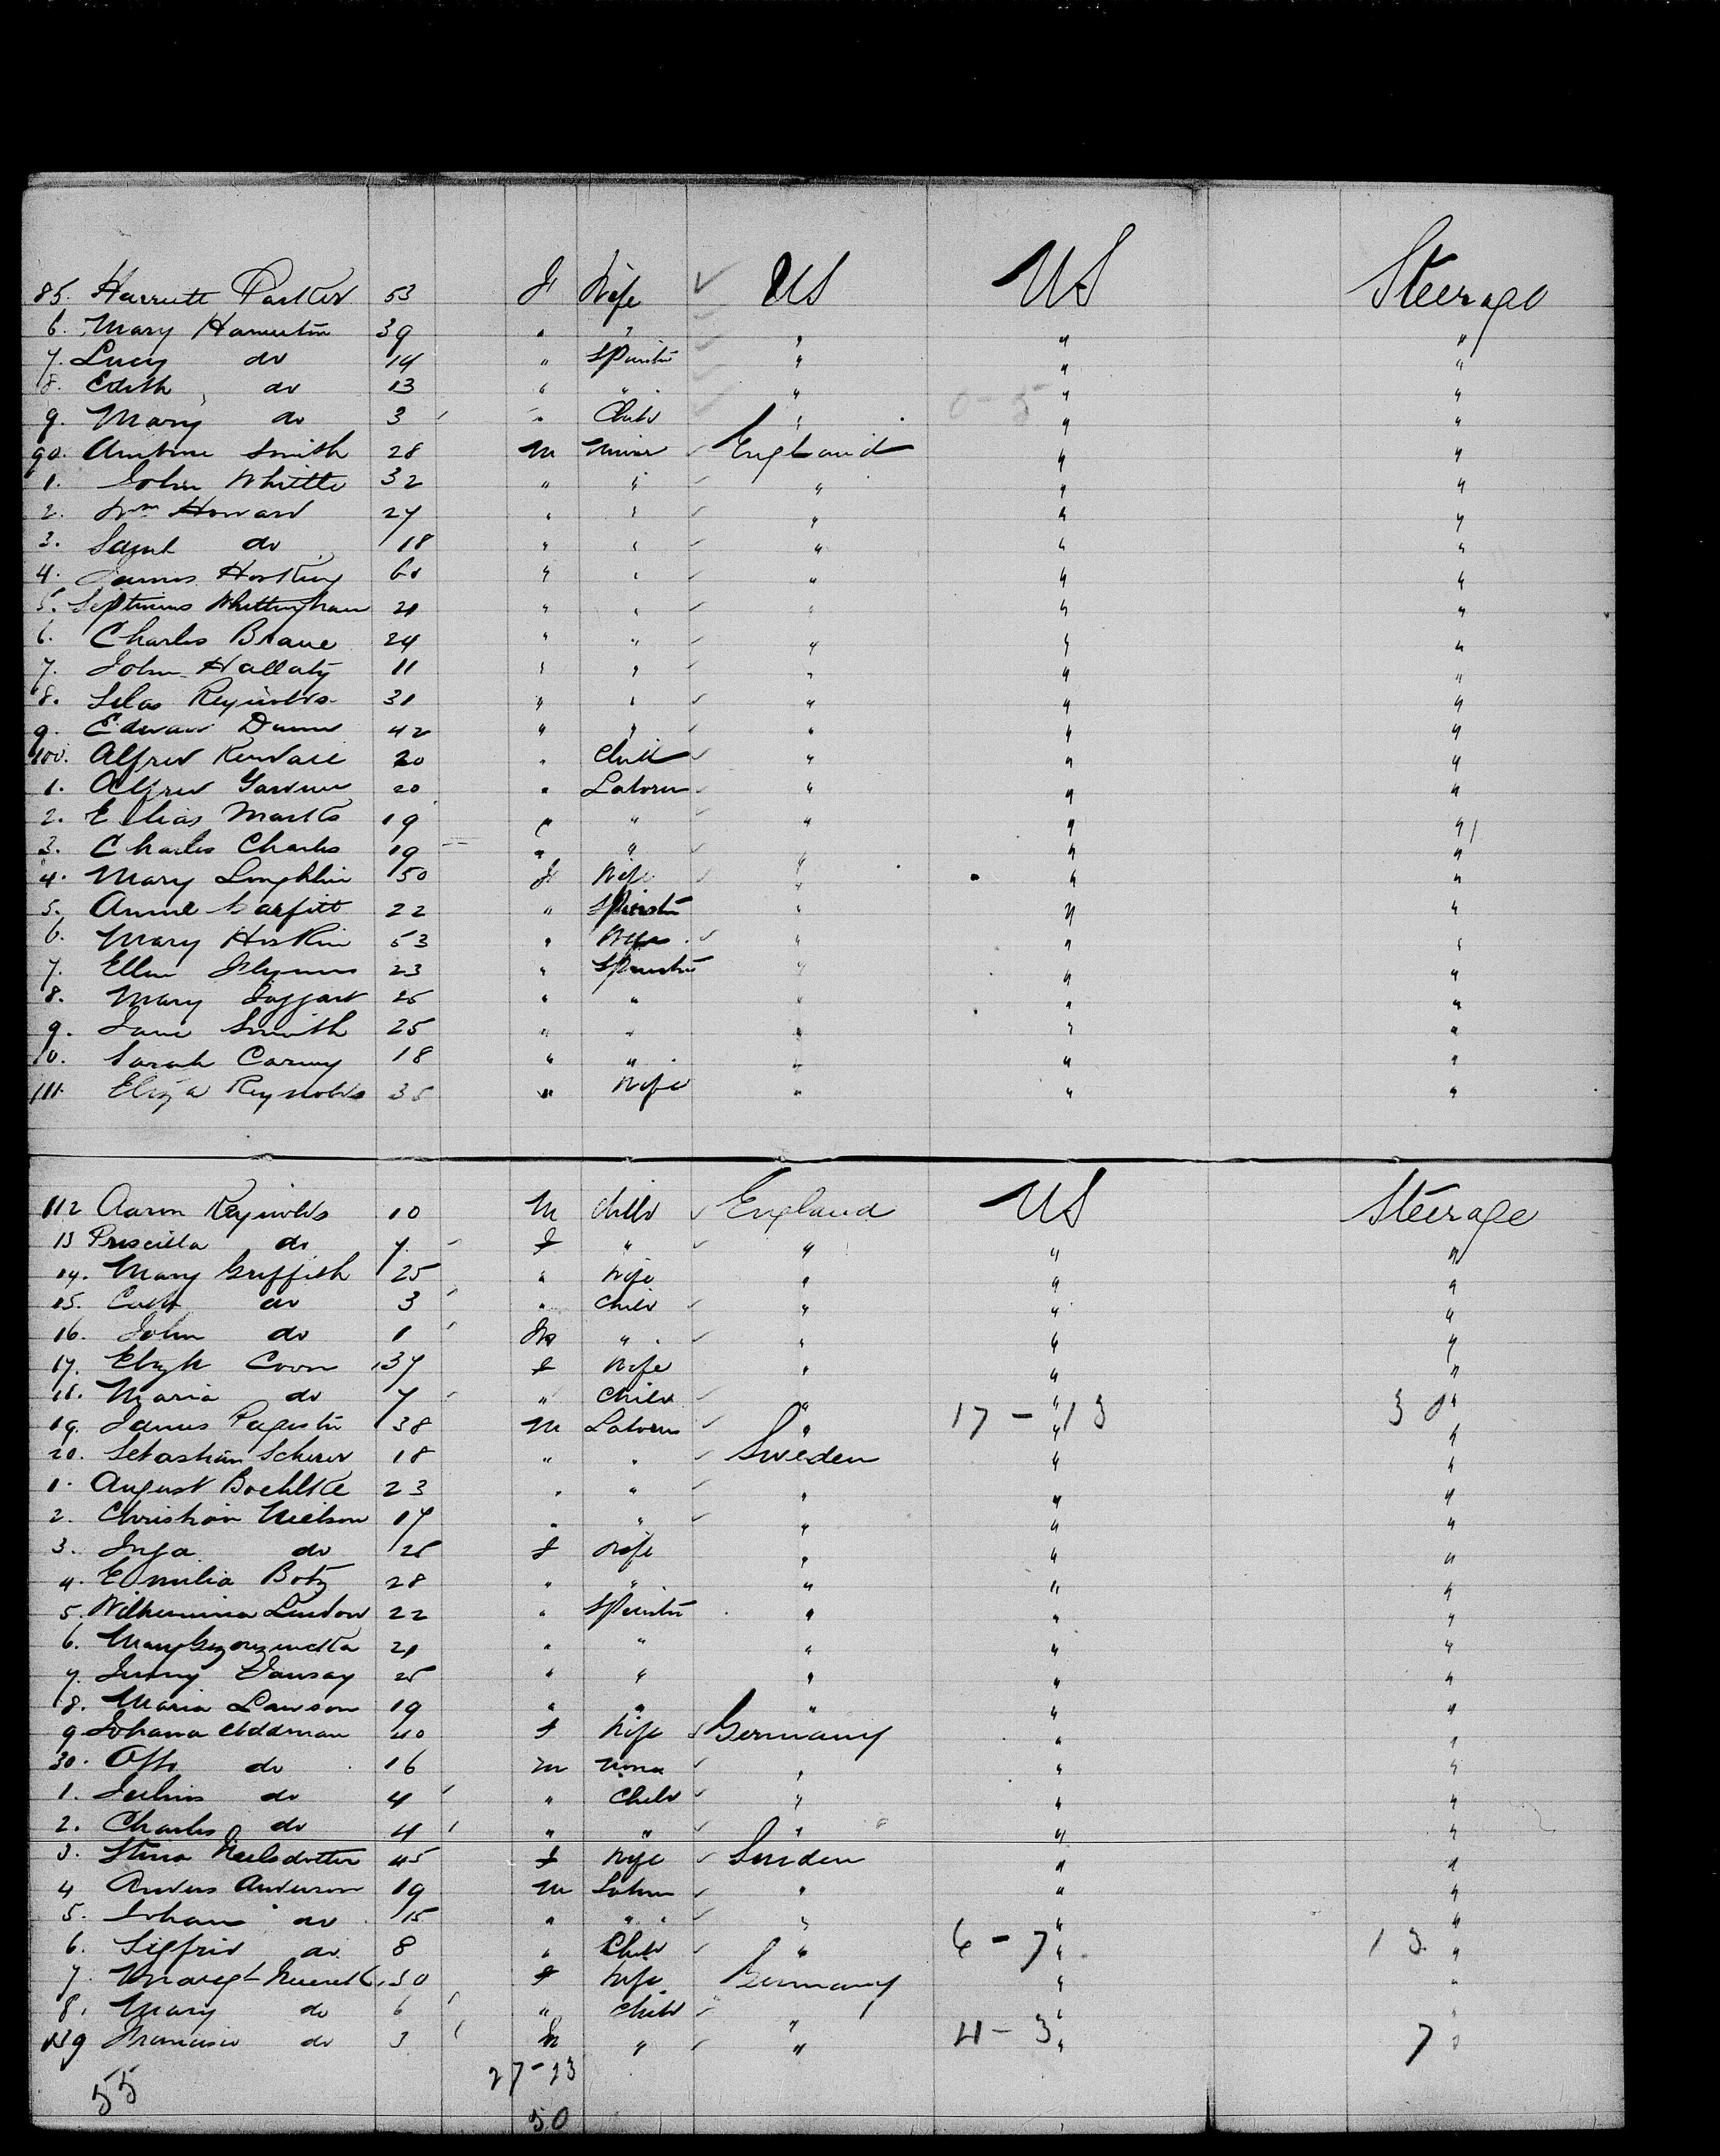 85. Harriett Parker 53 F Wife ✓ US US Steerage
6. Mary 39 " " " " "
7. Lucy do 14 " Spinstr " " "
8. Edith do 13 " " " " "
9. Mary do 3 " Child " 0-5 " "
90. Smith 28 M Miner England " "
1. John Whittle 32 " " " " "
2. Wm Howard 27 " " " " "
3. Saml do 18 " " " " "
4. James Hosking 60 " " " " "
5. Septimus Whittingham 21 " " " " "
6. Charles 24 " " " " "
7. John 11 " " " " "
8. Silas Reynolds 31 " " " " "
9. Edward Dunn 42 " " " " "
100. Alfred Kendall 20 " " " "
1. Alfred 20 " Laborer " " "
2. Elias Marks 19 " " " " "
3. Charles Charles 19 " " " " "
4. Mary Loughlin 50 F Wife " " "
5. Annie 22 " Spinstr " " "
6. Mary Hoskin 53 " Wife " " "
7. Ellen 23 " Spinstr " " "
8. Mary Taggart 25 " " " " "
9. Jane Smith 25 " " " " "
10. Sarah 18 " " " " "
111. Eliza Reynolds 35 " Wife " " "
112 Aaron Reynolds 10 M Child England US Steerage
13 Priscilla do 7 F " " " "
14. Mary Griffith 25 " Wife " " "
15. do 3 " Child " " "
16. John do 1 M " " " "
17. Elizh Coon 37 F Wife " " "
18. Maria do 7 " Child " 17-13 " 30 "
19. James 38 M Laborer " " "
20. Sebastian Scherer 18 " " Sweden " "
1. August Boehlke 23 " " " " "
2. Christian Nielson 17 " " " " "
3. Inga do 25 F Wife " " "
4. Emilia Botz 28 " " " " "
5. Wilhemina 22 " Spinstr " " "
6. Mary 21 " " " " "
7. Jenny 25 " " " " "
8. Maria Lawson 19 " " " " "
9 Johana 40 F Wife Germany " "
30. Otto do 16 M " " "
1. Julius do 4 " Child " " "
2. Charles do 4 " " " " "
3. Stina Neilsdotter 45 F Wife Sweden " "
4 Anders Anderson 19 M " " "
5. Johan do 15 " " " " "
6. Sigfrid do 8 " Child " 6-7 " 13 "
7. 30 F Wife Germany " "
8. Mary do 6 " Child " " "
139 do 3 M " " 4-3 " 7 "
55 27-23
50